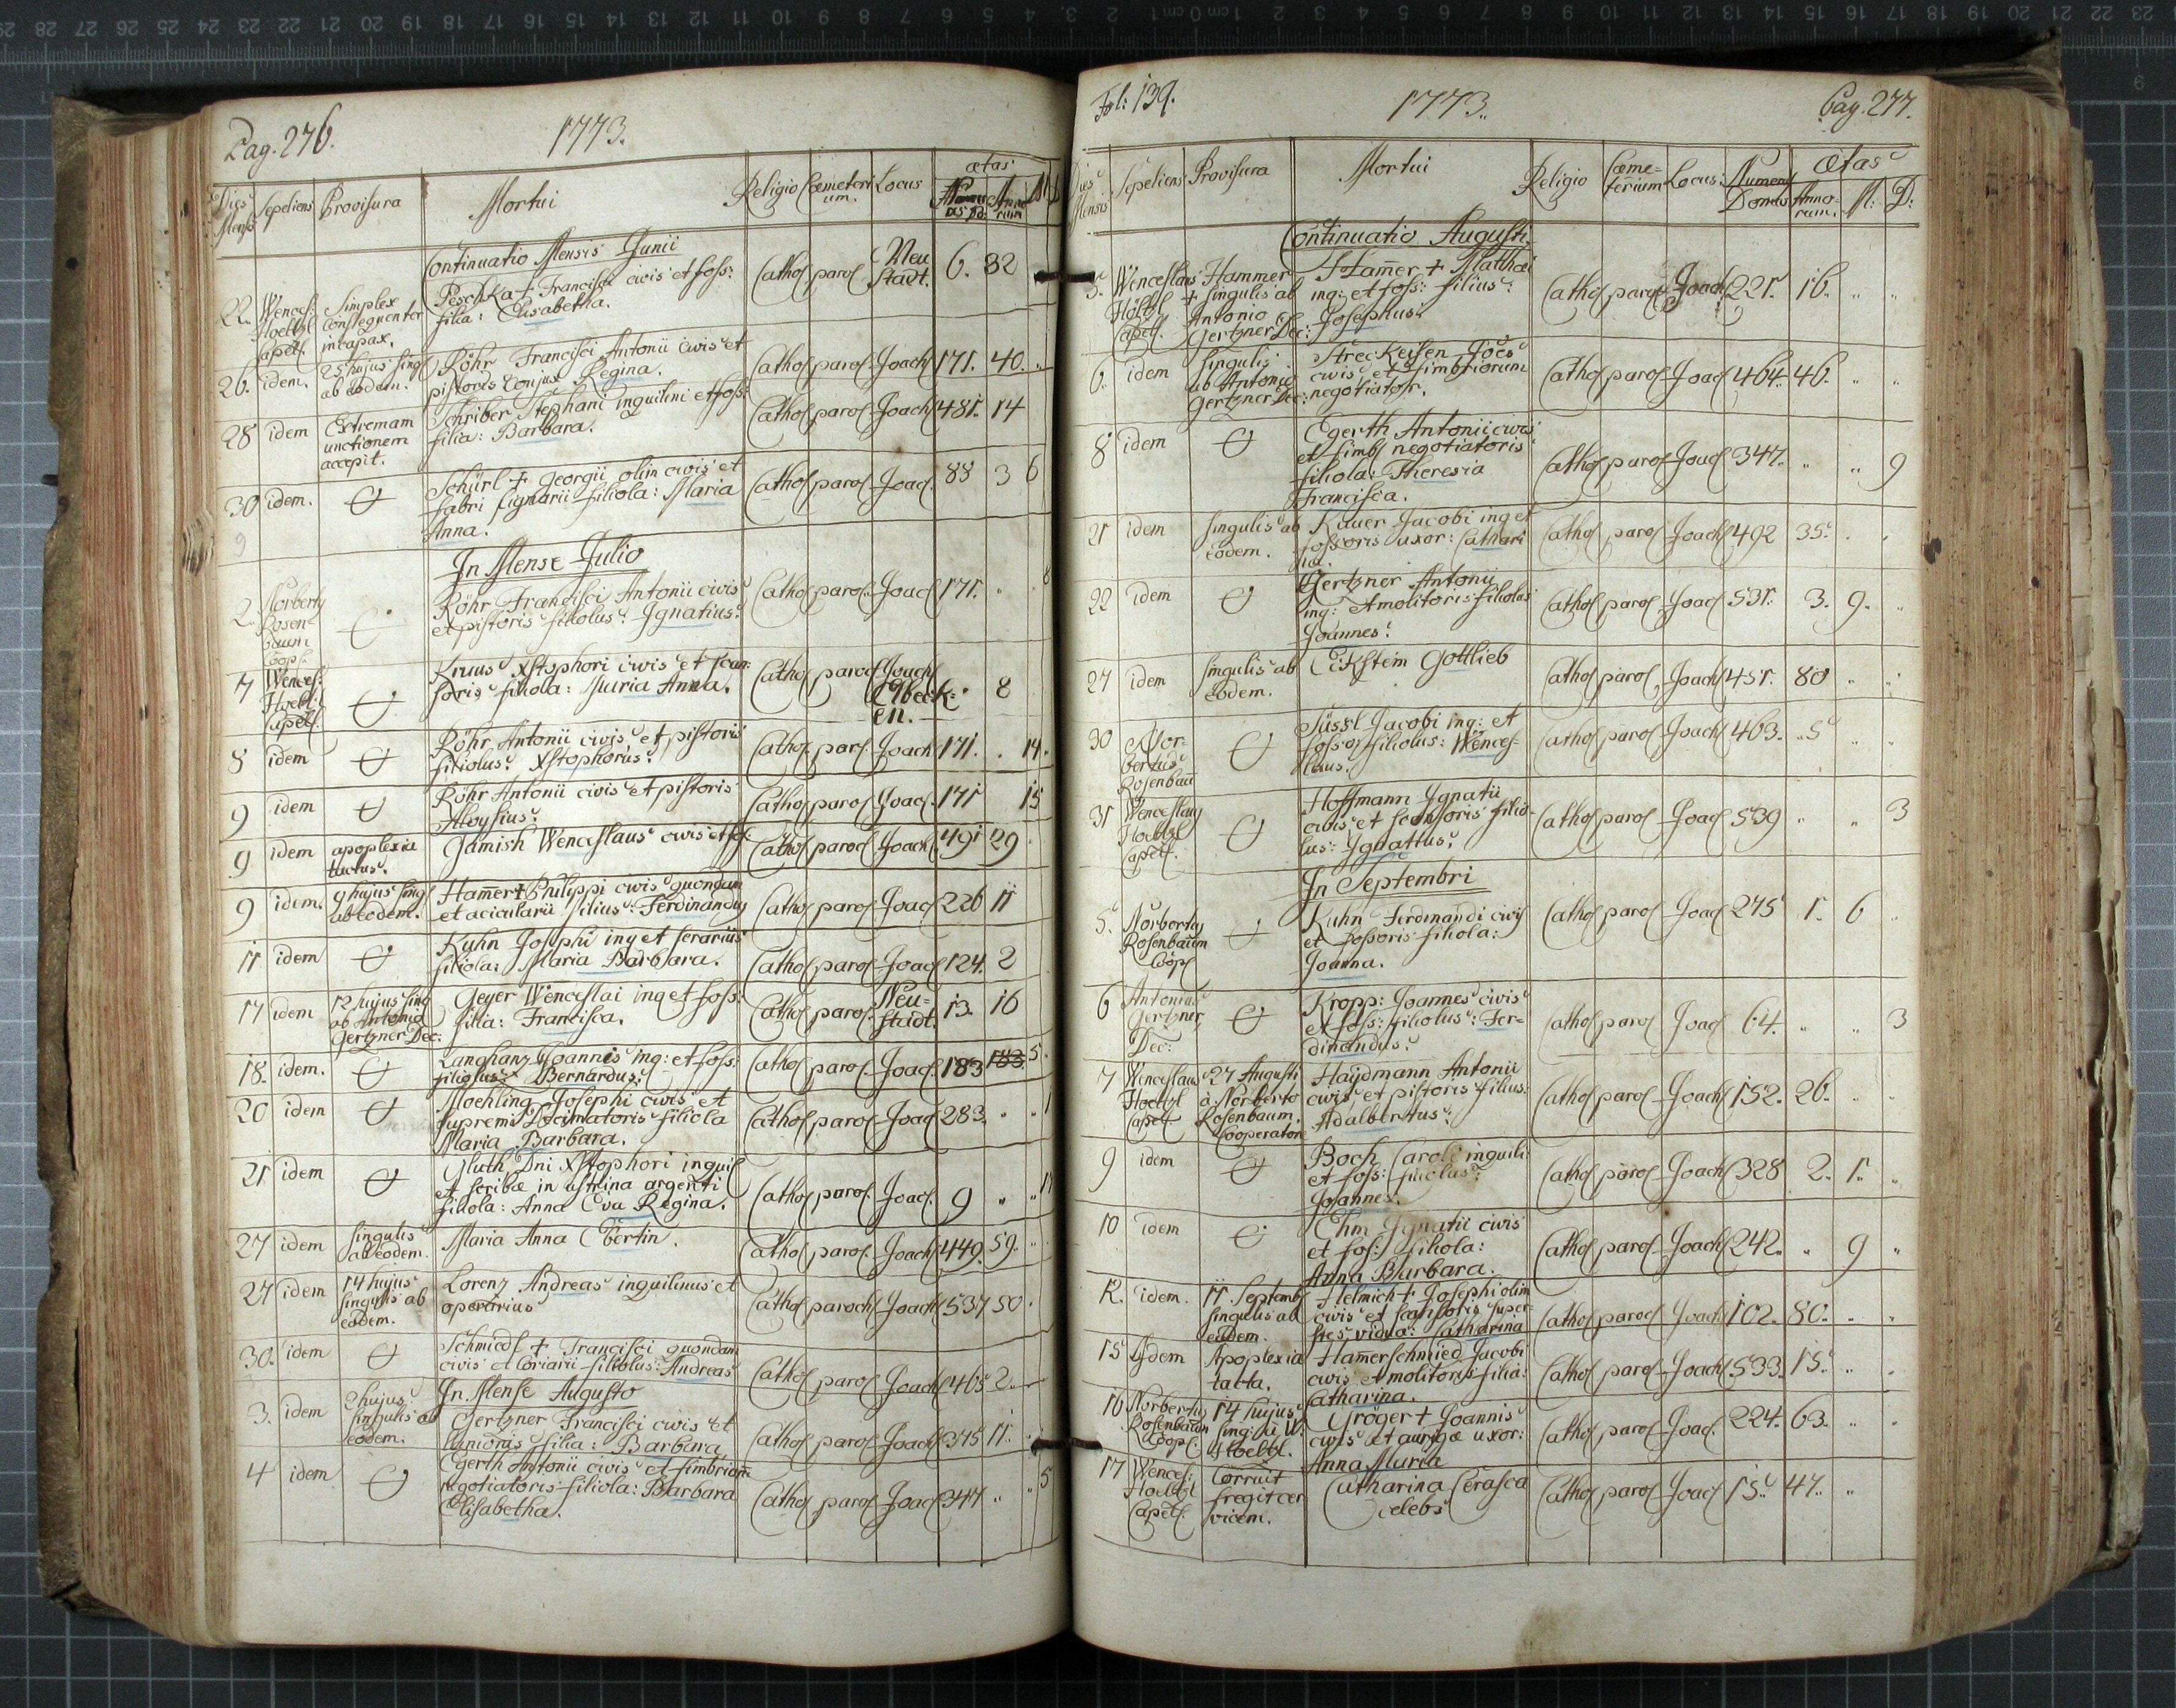 Pag. 276.
1773.
Dies Mensis Sepeliens Provisura Mortui Religio Cœmeterium. Locus ætas
Annorum M D
Continuatio Mensis Junii
22. Wences: Hoelzl capel. Simplex consequenter incapax. Peschka + Francisci civis et foss: filia: Elisabetha. Cathol parol Neustadt. 6. 32
26. idem. 25 hujus sing ab eodem. Röhr Francisci Antonii civis et pistoris conjux Regina. Cathol parol Joach 171. 40.
28 idem Extremam unctionem accepit. Schriber Stephani inquilini et foss: filia: Barbara. Cathol parol Joach 481. 14
30 idem. Schürl + Georgii olim civis et fabri lignarii filiola: Maria Anna. Cathol parol Joac. 88 3 6
In Mense Julio
2. Norberty Rosenbaum Coop. Röhr Francisci Antonii civis et pistoris filiolus: Ignatius. Cathol parol Joac 171. 8
7 Wences: Hoelzl: capel. Kruus Xstophori civis et scansoris filiola: Maria Anna. Cathol paroc Joach 8
8 idem Röhr Antonii civis et pistoris filiolus: Xstophorus. Cathol parl. Joach 171. 14.
9 idem Röhr Antonii civis et pistoris Aloysius. Cathol parol Joac. 171 15
9 idem apoplexia tactus. Jamish Wenceslaus civis et foss Cathol paroc Joach 491 29
9 idem. 9 hujus sing ab eodem. Hamer + Philippi civis quondam et acicularii filius: Ferdinandus Cathol parol Joac 226 11
11 idem Kuhn Josephi inq et serarius filiola: Maria Barbara. Cathol parol Joac 124. 2
17 idem 12 hujus sing ab Antonio Gertzner Dec: Geyer Wenceslai inq et foss: filia: Francisca. Cathol parol Neustadt. 13. 16
18. idem. Langhanz Joannis inq: et foss: filiolus: Bernardus. Cathol parol Joac. 183 183 5.
20 idem Moehling Josephi civis et supremi Decimatoris filiola Maria Barbara. Cathol parol Joac 283. 1
21 idem Gluth Dni Xstophori inquil et scribæ in ustrina argenti filiola: Anna Eva Regina. Cathol parol. Joac. 9 17
27 idem singulis ab eodem. Maria Anna Ebertin. Cathol parol. Joach 449. 59.
27 idem 14 hujus singulis ab eodem. Lorenz Andreas inquilinus et operarius Cathol paroch Joach 537 50
30. idem Schmiedl + Francisci quondam civis et coriarii filiolus: Andreas Cathol parol Joach 465 2.
In Mense Augusto
3. idem 2 hujus singulis ab eodem. Gertzner Francisci civis et lanionis filia: Barbara Cathol parol Joach 375 11.
4 idem Egerth Antonii civis et fimbriarum negotiatoris filiola: Barbara Elisabetha. Cathol parol Joac 347 5
Fol: 139.
1773.
Pag. 277.
Dies Mensis Sepeliens Provisura Mortui Religio Cœmeterium Locus: Numerus Domus Ætas Annorum. M: D:
Continuatio Augusti
5. Wenceslaus Hölzl Capel. Hammer + singulis ab Antonio Gertzner Dec: Hamer + Mathæi inq: et foss: filius: Josephus. Cathol paroc Joach. 221. 16.
6. idem singulis ab Antonio Gertzner Dec: Streckeisen Joës civis et fimbriorum negotiator. Cathol parol Joac 464. 46.
8 idem Egerth Antonii civis et fimb negotiatoris filiola: Theresia Francisca. Cathol parol Joac 347. 9
21 idem singulis ab eodem. Kauer Jacobi inq et fossoris uxor: Catharina. Cathol parol Joach 492 35.
22 idem Gertzner Antonii inq: et molitoris filiolus Joannes. Cathol parol Joac 531. 3. 9.
27 idem singulis ab eodem. Eikstein Gottlieb Cathol parol Joach 451. 80
30 Norbertus Rosenbaum Süssl Jacobi inq: et fossor filiolus: Wenceslaus. Cathol parol Joach 463. 5
31 Wenceslaus Hoelzl Capel. Hoffmann Ignatii civis et scansoris filiolus: Ignatius. Cathol parol Joac 539 3
In Septembri
5. Norberty Rosenbaum Coop Kuhn Ferdinandi civis et fossoris filiola: Joanna. Cathol parol Joac 275 1. 6
6 Antonius Gertzner Dec: Kropp: Joannes civis et foss: filiolus: Ferdinandus. Cathol parol Joac 64. 3
7 Wenceslaus Hoelzl Capel 27 Augusti à Norberto Rosenbaum. Cooperatore Haydmann Antonii civis et pistoris filius: Adalbertus. Cathol parol Joach 152. 26.
9 idem Boch Caroli inquili: et foss: filiolus: Joannes. Cathol parol Joach 328 2. 1.
10 idem Ehm Ignatii civis et fos: filiola: Anna Barbara. Cathol parol Joach 242. 9
12. idem. 11 Septemb singulis ab eodem. Helmich + Josephi olim civis et scansoris superstes vidua: Catharina Cathol paroc Joach 102. 80.
15 Idem Apoplexia tacta. Hamerschmied Jacobi civis et molitoris filia: Catharina. Cathol parol Joach 533. 15.
16 Norbertus Rosenbaum Coop. 14 hujus sing: à W. Hoelzl. Gröger + Joannis civis et aurigæ uxor: Anna Maria Cathol parol Joac. 224. 63.
17 Wences: Hoelzl Capel. Corruit fregit cervicem. Catharina Cerasca celebs Cathol parol Joac 15. 47.